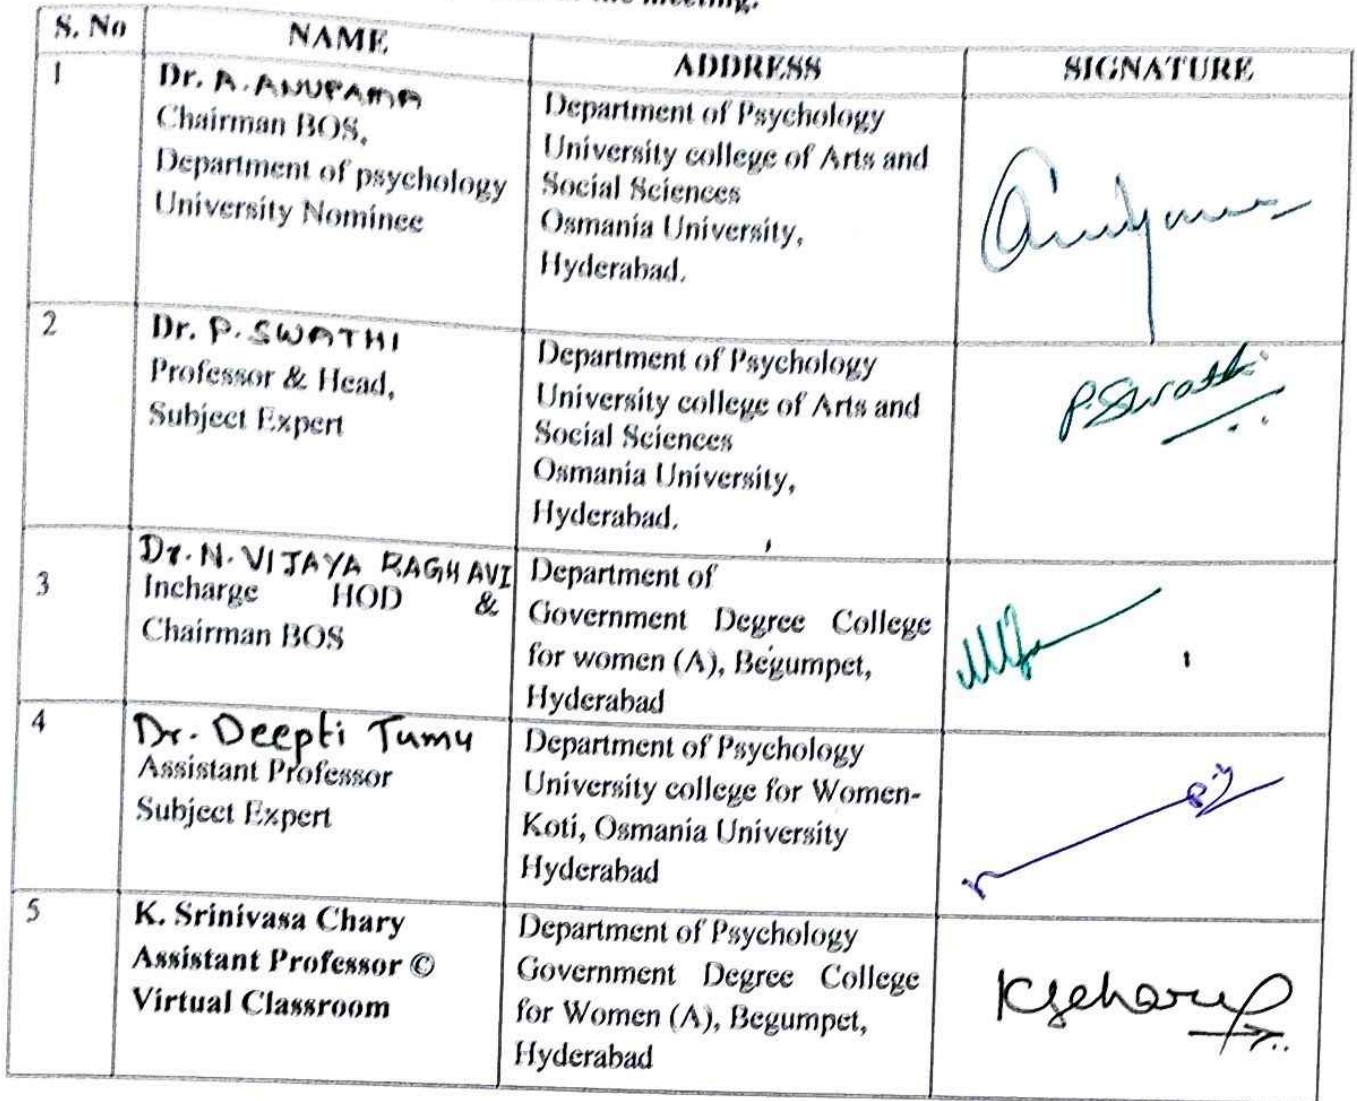 the meeting.
S. No NAME ADDRESS SIGNATURE
1
Dr. A. ANUPAMA
Chairman BOS,
Department of psychology
University Nominee
Department of Psychology
University college of Arts and
Social Sciences
Osmania University,
Hyderabad.
2
Dr. P. SWATHI
Professor & Head,
Subject Expert
Department of Psychology
University college of Arts and
Social Sciences
Osmania University,
Hyderabad.
P. Swathi
3
Dr. N. VIJAYA RAGHAVI
Incharge HOD &
Chairman BOS
Department of
Government Degree College
for women (A), Begumpet,
Hyderabad
4
Dr. Deepti Tumu
Assistant Professor
Subject Expert
Department of Psychology
University college for Women-
Koti, Osmania University
Hyderabad
5
K. Srinivasa Chary
Assistant Professor ©
Virtual Classroom
Department of Psychology
Government Degree College
for Women (A), Begumpet,
Hyderabad